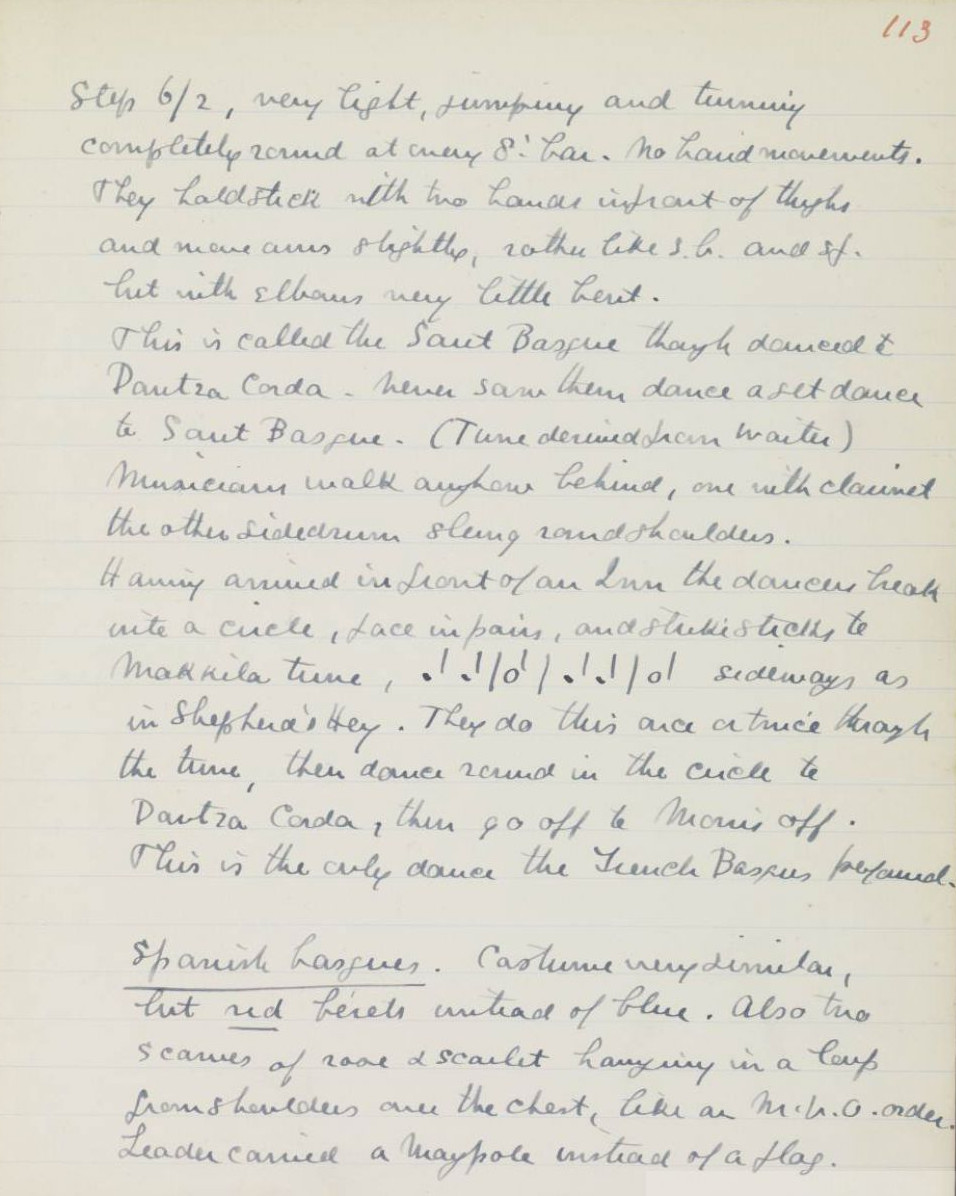 113
Step 6/2, very light, jumping and turning
completely round at every 8: bar. No hand movements.
They hold stick with two hands in front of thighs
and move arms slightly, rather like s.b. and sf.
but with elbows very little bent.
This is called the Saut Basque though danced to
Dantza Corda - never saw them dance a set dance
to Saut Basque. (Tune derived from Waiter)
Musicians walk anyhow behind, one with clarinet
the other sidedrum slung round shoulders.
Having arrived in front of an Inn the dancers break
into a circle, face in pairs, and strike sticks to
Makkila tune, sideways as
in Shepherd's Hey. They do this once or twice through
the tune, then dance round in the circle to
Dantza Corda, then go off to Morris off.
This is the only dance the French Basques performed.
Spanish basques. Costume very similar,
but red bérets instead of blue. Also two
scarves of rose & scarlet hanging in a loop
from shoulders over the chest, like an M.h.O. order.
Leader carried a Maypole instead of a flag.